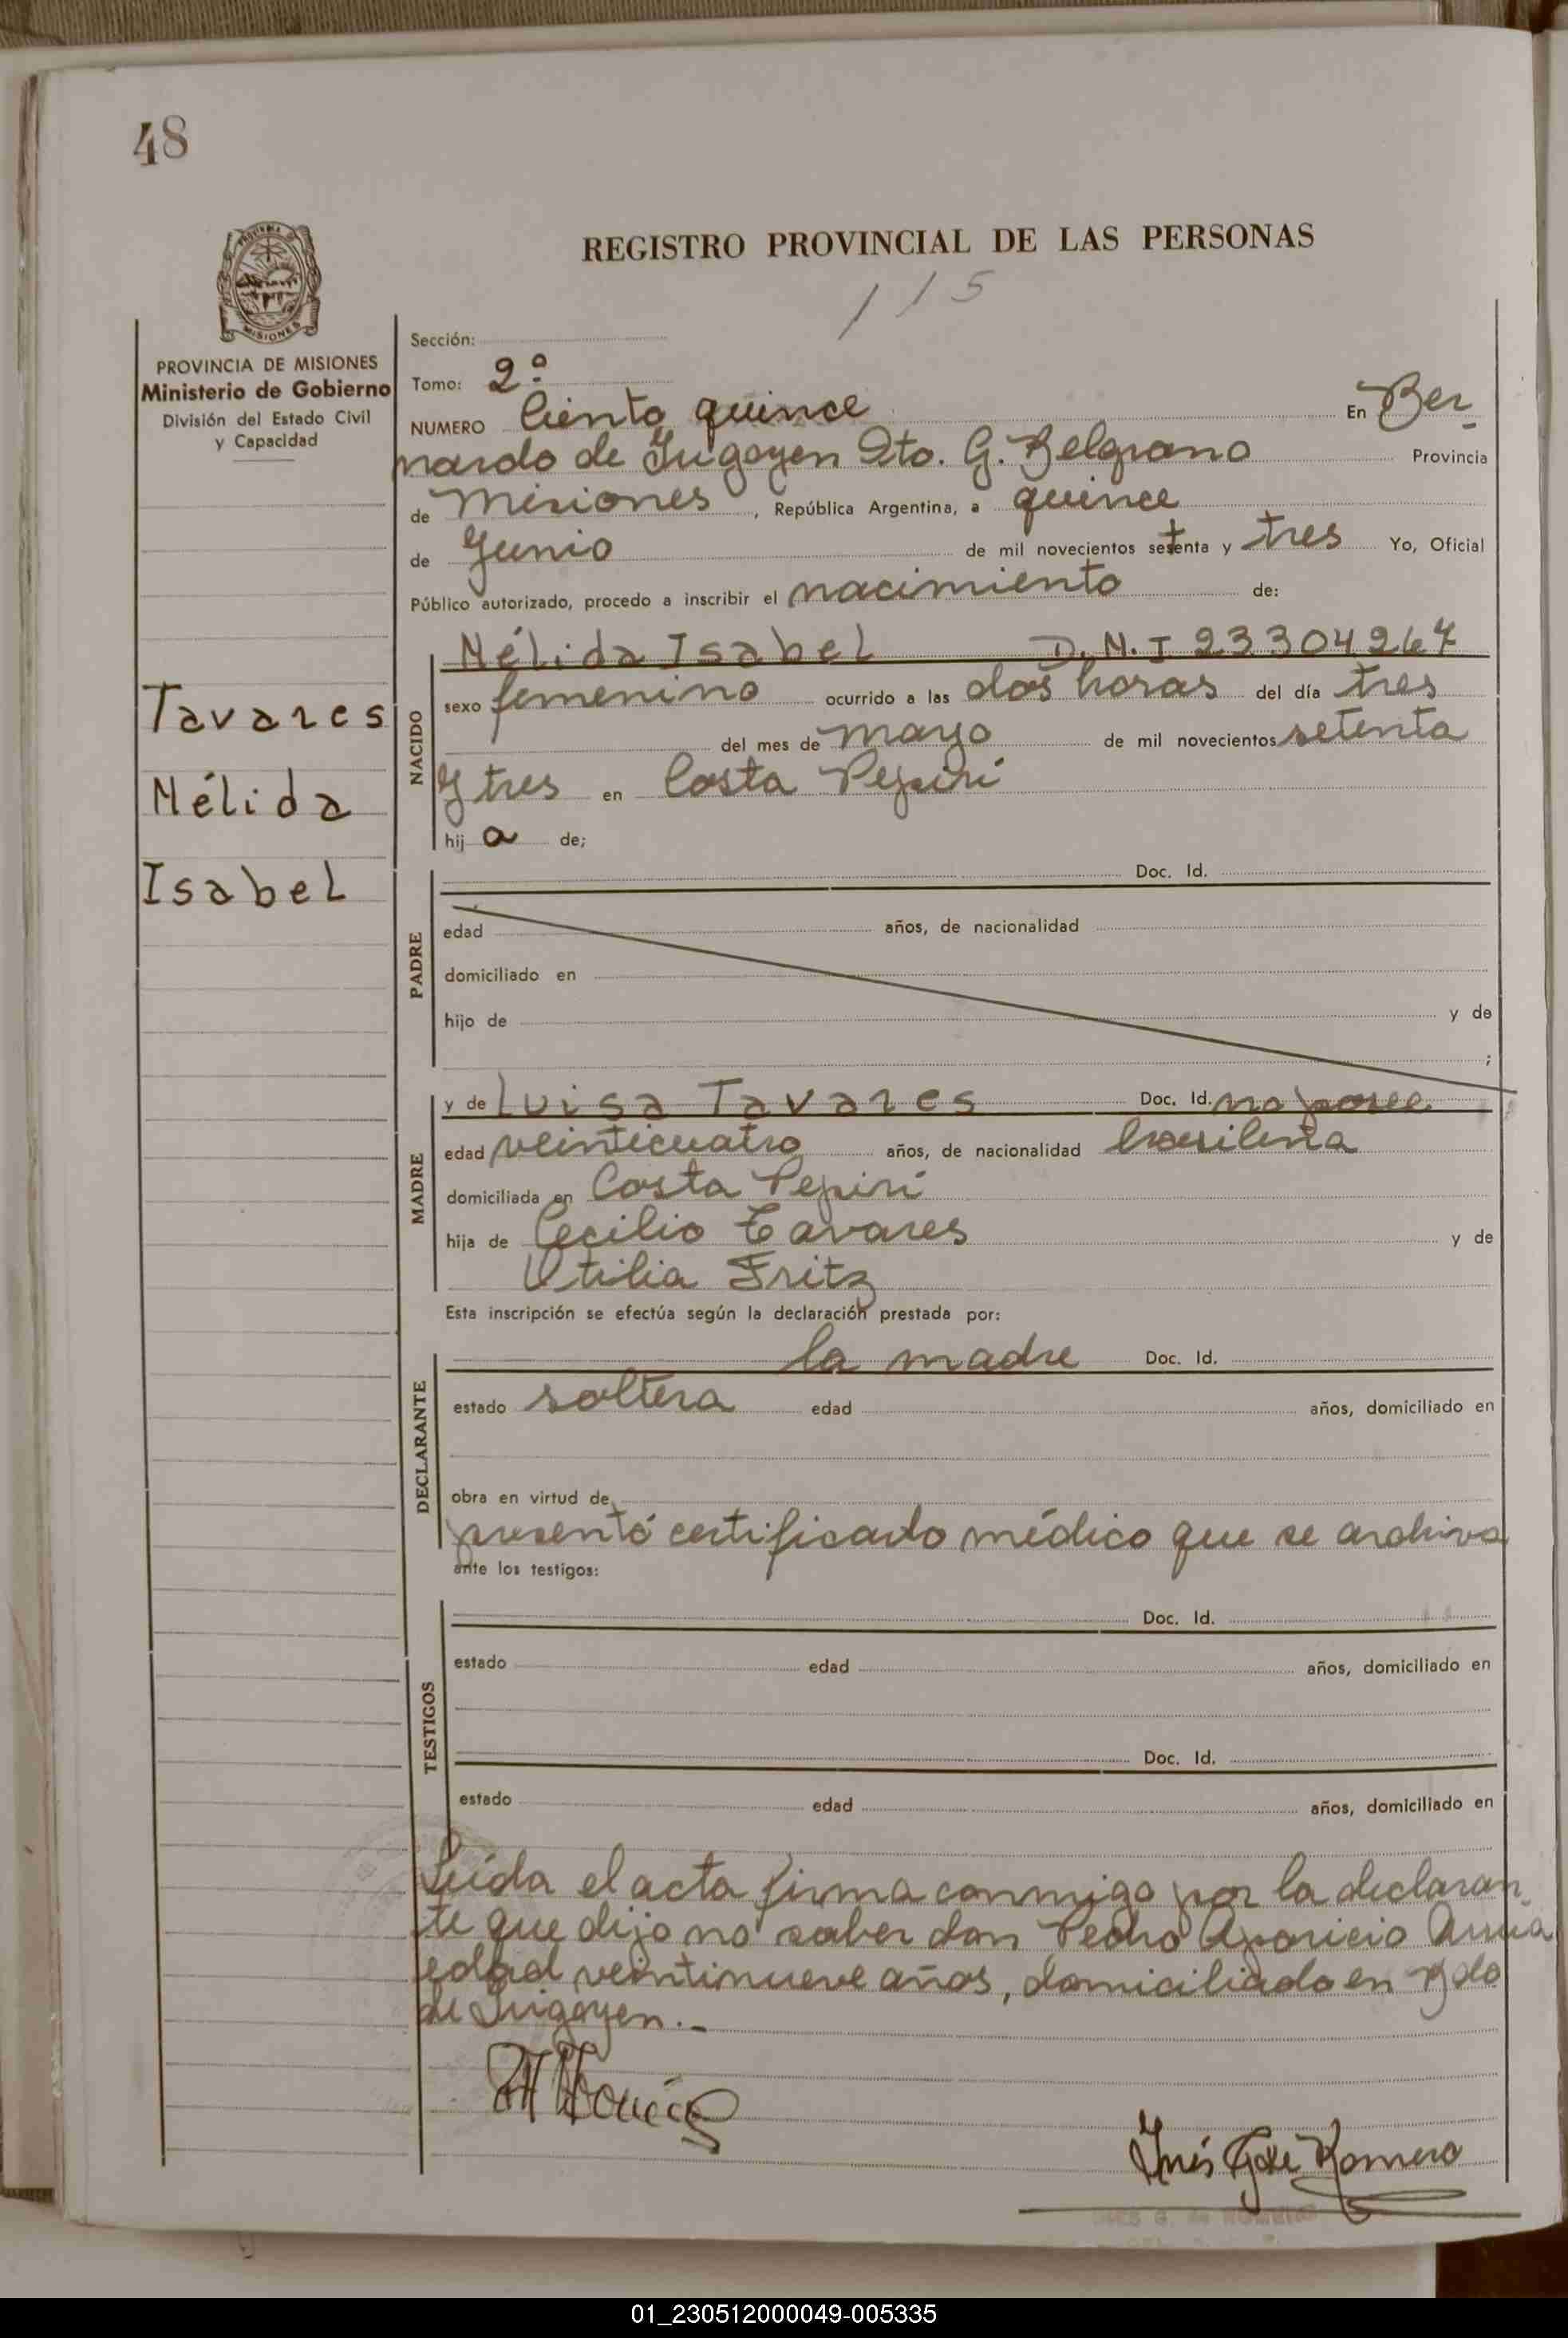 48
REGISTRO PROVINCIAL DE LAS PERSONAS
115
MISIONES
PROVINCIA DE MISIONES
Ministerio de Gobierno
División del Estado Civil
y Capacidad
Tavares
Nélida
Isabel
Sección:
Tomo: 2º
NUMERO Ciento quince En Ber-
nardo de Irigoyen Dto. G. Belgrano Provincia
de Misiones, República Argentina, a quince
de Junio de mil novecientos setenta y tres Yo, Oficial
Público autorizado, procedo a inscribir el nacimiento de:
NACIDO
Nélida Isabel D.N.I 23304267
sexo femenino ocurrido a las dos horas del día tres
del mes de mayo de mil novecientos setenta
y tres en Costa Pepirí
hija de;
PADRE
Doc. Id.
edad años, de nacionalidad
domiciliado en
hijo de y de
;
MADRE
y de Luisa Tavares Doc. Id. no posee
edad veinticuatro años, de nacionalidad brasileña
domiciliada en Costa Pepirí
hija de Cecilio Tavares y de
Utilia Fritz
Esta inscripción se efectúa según la declaración prestada por:
DECLARANTE
la madre Doc. Id.
estado soltera edad años, domiciliado en
obra en virtud de
presentó certificado médico que se archiva
ante los testigos:
TESTIGOS
Doc. Id.
estado edad años, domiciliado en
Doc. Id.
estado edad años, domiciliado en
Leída el acta firma conmigo por la declaran-
te que dijo no saber don Pedro Aparicio
edad veintinueve años, domiciliado en Bdo
de Irigoyen.-
Inés G. de Romero
INES G. de ROMERO
01_230512000049-005335